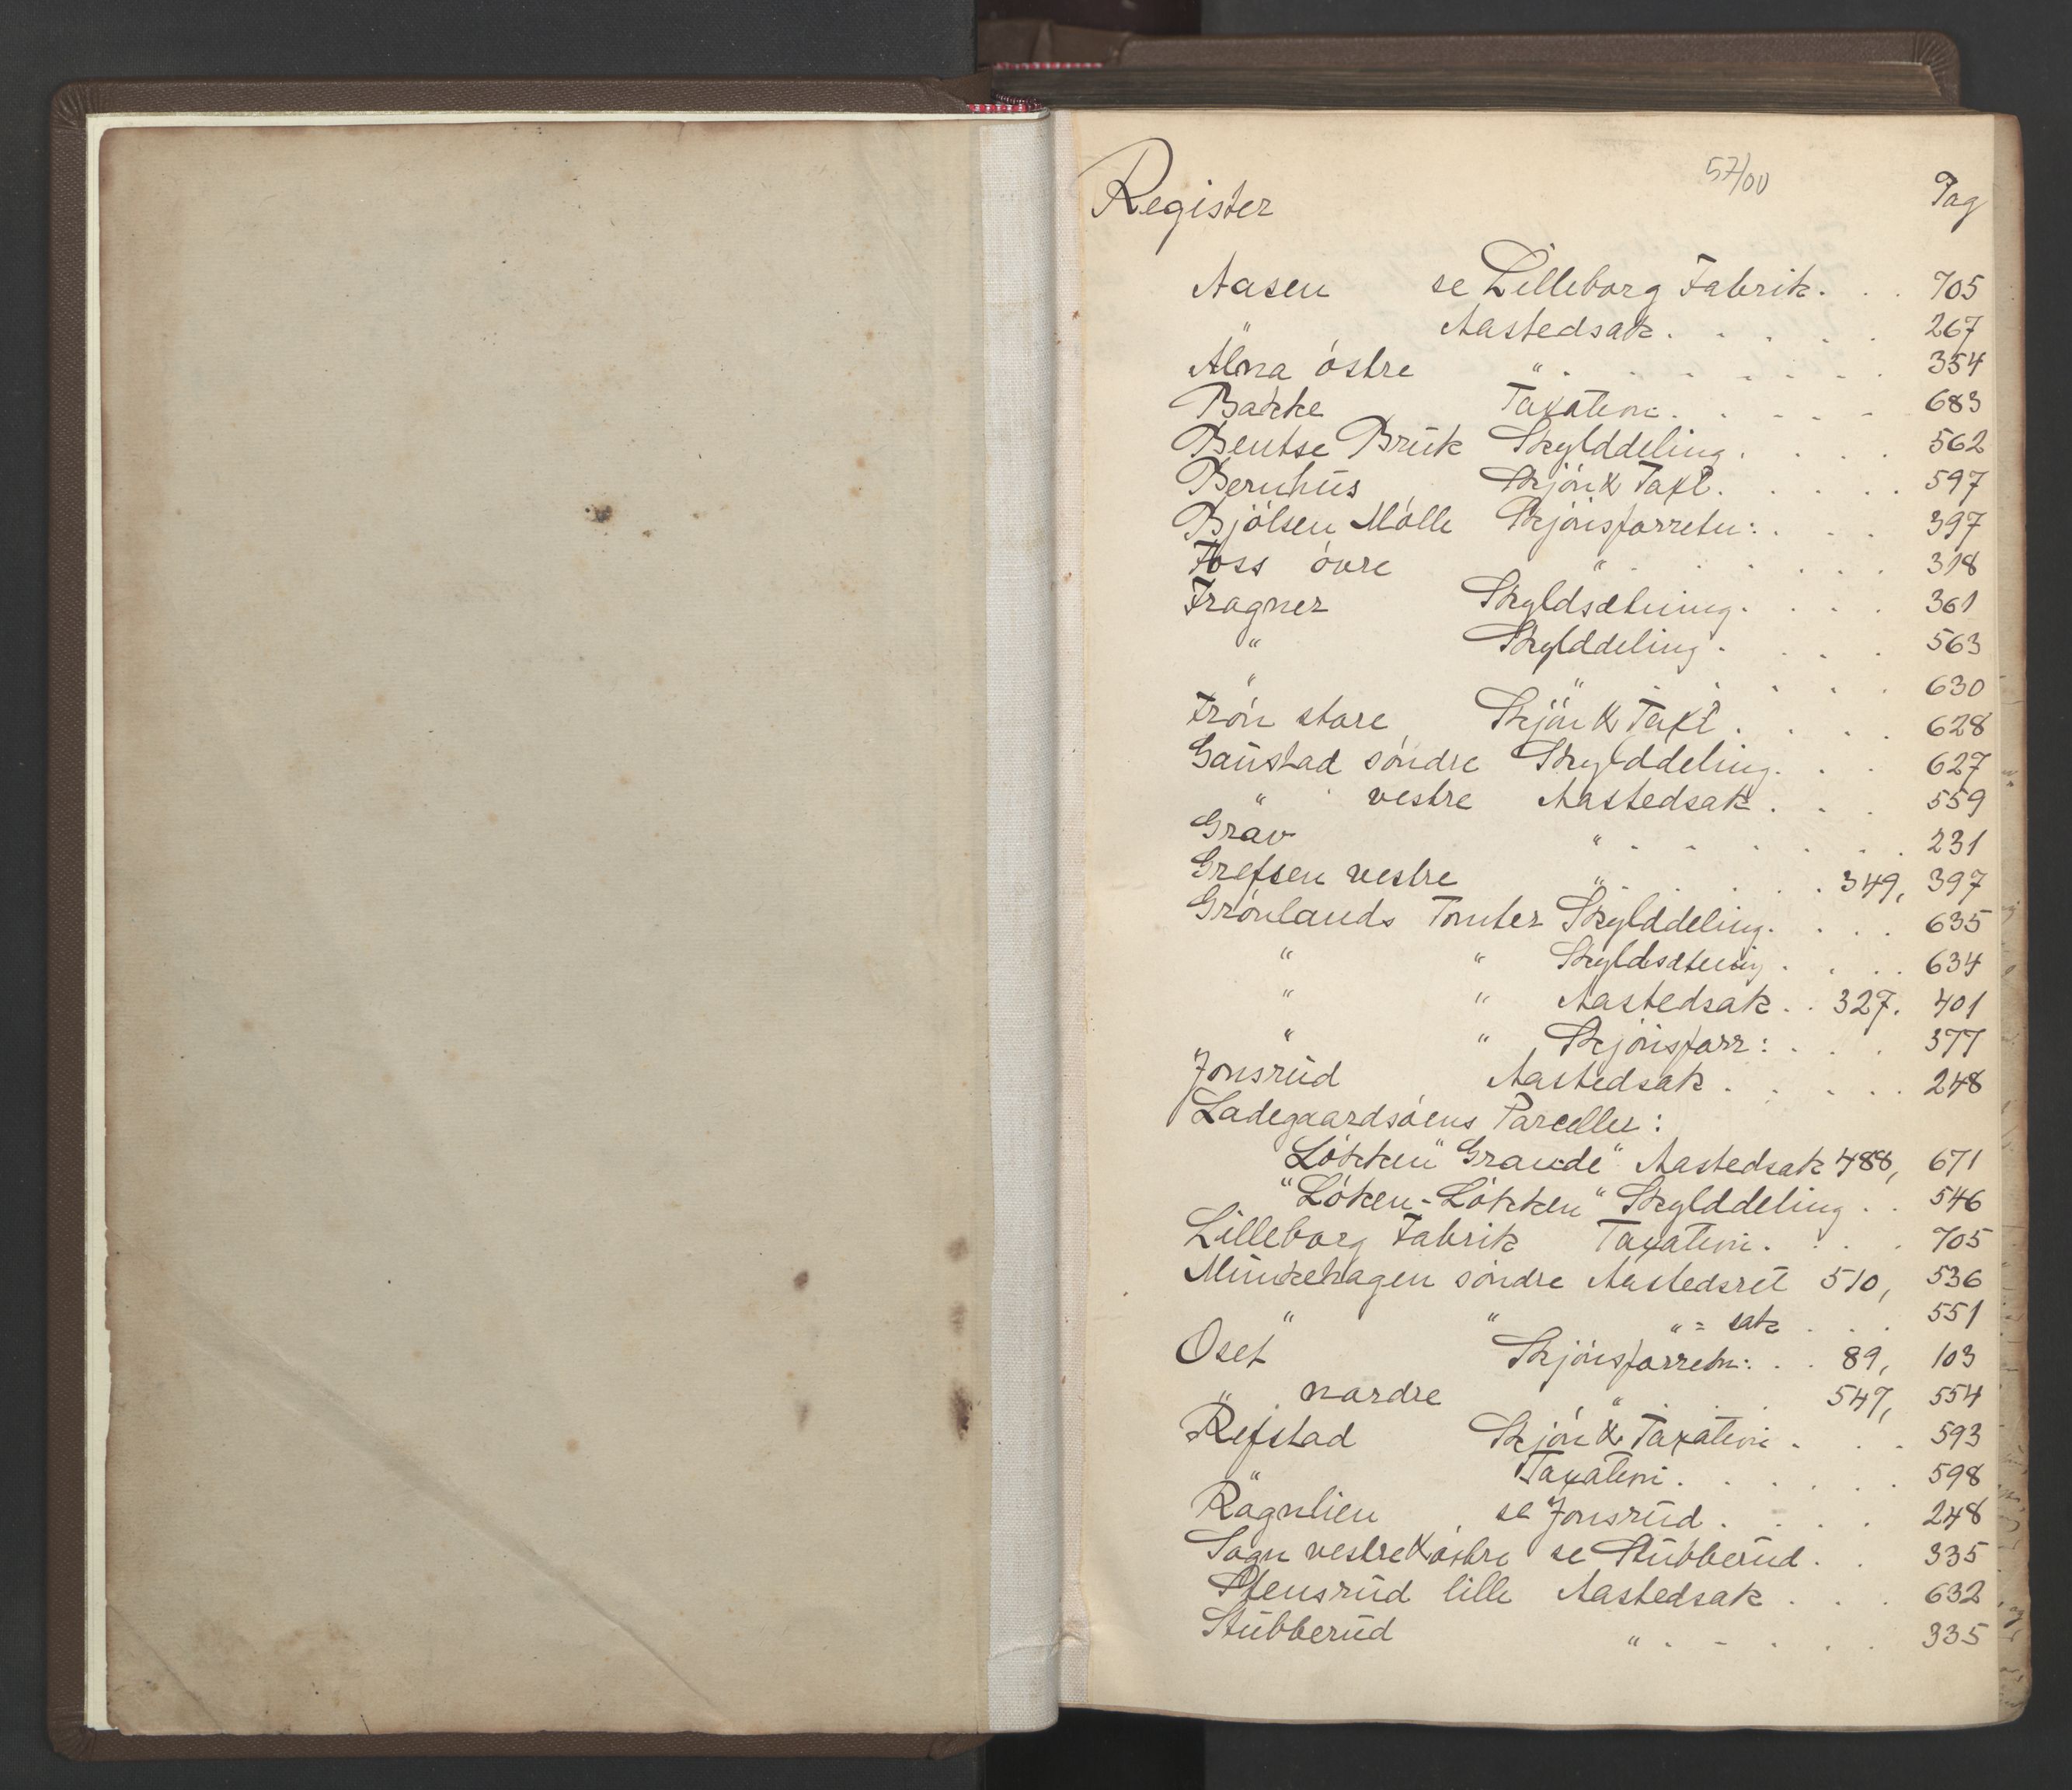 57/00
Register Pag
Aasen se Lilleborg Fabrik. . . 705
" Aastedsak. . . . . . 267
Alna östre " . . . . . . . . 354
Bakke Taxation. . . . . 683
Bentse Brug Skylddeling. . . . 562
Bernhus Skjön & Taxt. . . . . 597
Bjölsen Mölle Skjönsforretn: . . . 397
Foss övre " . . . . . . 318
Fragner Skyldsætning. . . . 361
" Skylddeling. . . . 563
" " . . . . . 630
Frön store Skjön & Taxt . . . . 628
Gaustad söndre Skylddeling. . . 627
" vestre Aastedsak . . . 559
Grav " . . . . . . 231
Grefsen vestre " . . . . . 349, 397
Grönlands Tomter Skylddeling. . . . 635
" " Skyldsætning . . . . 634
" " Aastedsak . . 327. 401
" " Skjönsforr: . . . 377
Jonsrud Aastedsak . . . . . 248
Ladegaardsöens Parceller:
Lökken "Grande" Aastedsak 488, 671
"Löken-Lökken" Skylddeling . . 546
Lilleborg Fabrik Taxation. . . . 705
Munkehagen söndre Aastedsret 510, 536
" " " = sak . . . 551
Oset Skjönsforretn: . . 89, 103
" nordre " . . . 547, 554
Refstad Skjön & Taxation . . . 593
" Taxation . . . . . . 598
Ragnlien se Jonsrud . . . . 248
Sogn vestre & östre se Stubberud . . 335
Stensrud lille Aastedsak . . . 632
Stubberud " . - . . . 335